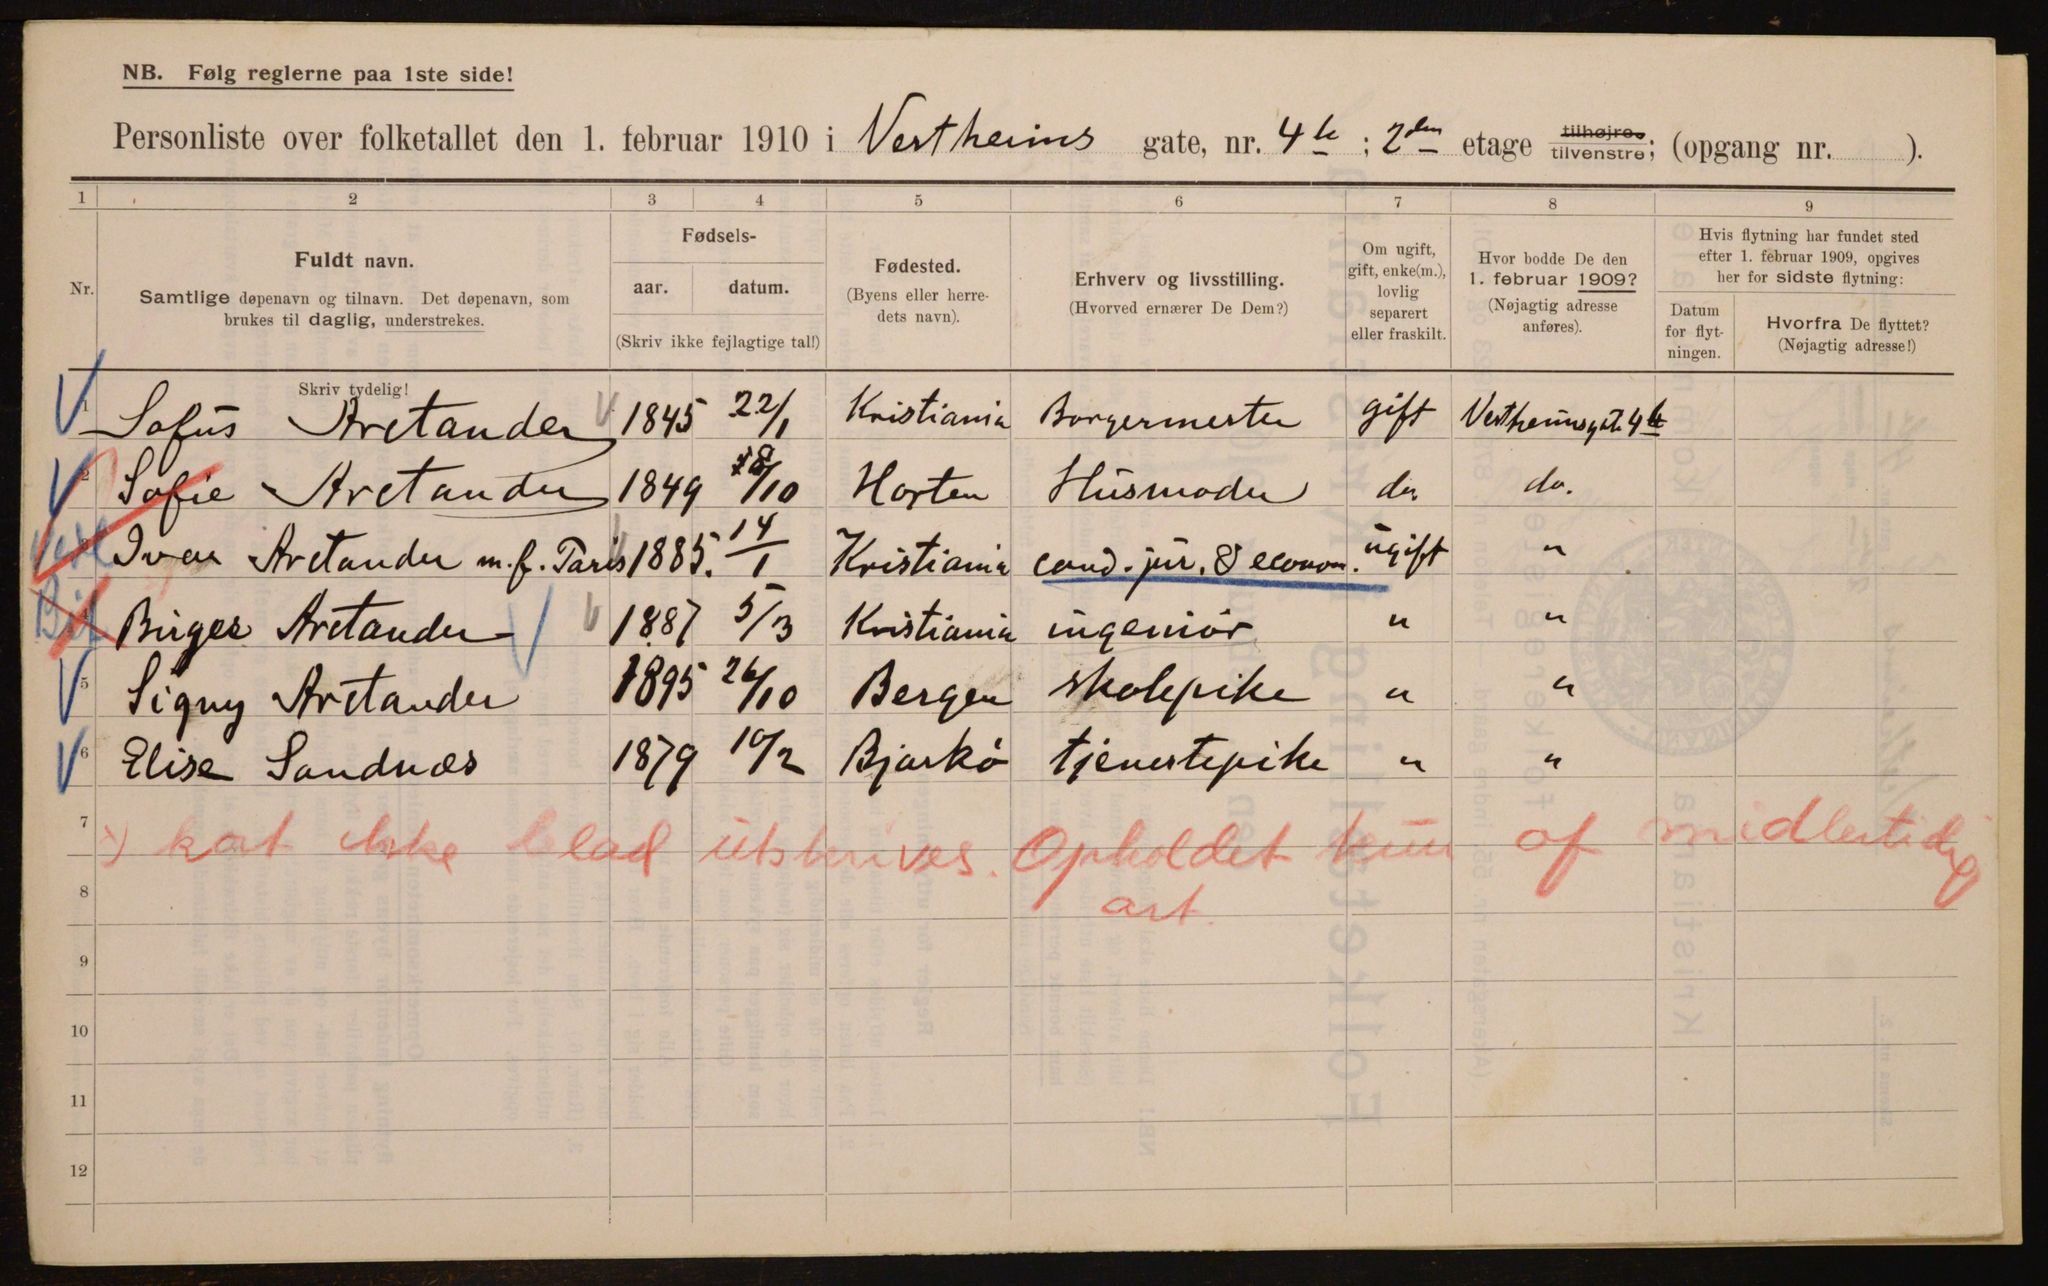 NB. Følg reglerne paa 1ste side!
Personliste over folketallet den 1. februar 1910 i Vestheims gate, nr. 4b; 2den etage tilhøjre tilvenstre; (opgang nr. ).
1 2 3 4 5 6 7 8 9
Nr.
Fuldt navn.
Samtlige døpenavn og tilnavn. Det døpenavn, som
brukes til daglig, understrekes.
Fødsels-
aar. datum.
(Skriv ikke fejlagtige tal!)
Fødested.
(Byens eller herre-
dets navn).
Erhverv og livsstilling.
(Hvorved ernærer De Dem?)
Om ugift,
gift, enke(m.),
lovlig
separert
eller fraskilt.
Hvor bodde De den
1. februar 1909?
(Nøjagtig adresse
anføres).
Hvis flytning har fundet sted
efter 1. februar 1909, opgives
her for sidste flytning:
Datum
for flyt-
ningen.
Hvorfra De flyttet?
(Nøjagtig adresse!)
Skriv tydelig!
1 Sofus Arctander 1845 22/1 Kristiania Borgermester gift Vestheimsgt. 4b
2 Sofie Arctander 1849 18/10 Horten Husmoder do. do.
3 Ivar Arctander m.f. Paris 1885. 14/1 Kristiania cand. jur. & econom. ugift "
4 Birger Arctander 1887 5/3 Kristiania ingeniör " "
5 Signy Arctander 1895 26/10 Bergen skolepike " "
6 Elise Sandnæs 1879 10/2 Bjarkö tjenestepike " "
7
kat ikke blad utskrives. Opholdet kun af midlertidig
8
art.
9
10
11
12